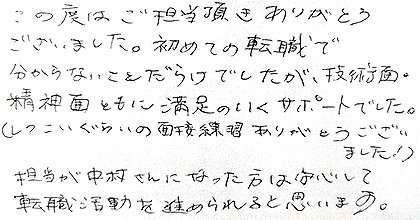 この度はご担当頂きありがとう
ございました。初めての転職で
分からないことだらけでしたが、技術面・
精神面ともに満足のいくサポートでした。
(しつこいぐらいの面接練習ありがとうござい
ました!)
担当が中村さんになった方は安心して
転職活動を進められると思います。